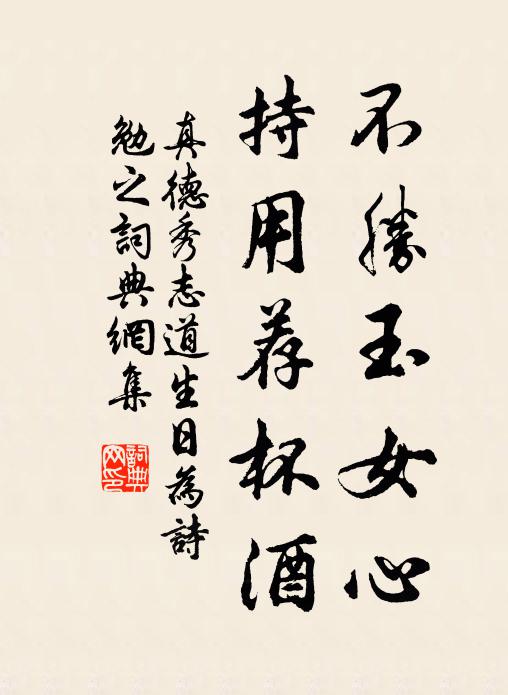 不勝玉女心
持用荐杯酒
真德秀志道生日為詩
勉之詞典網集
詞典网印